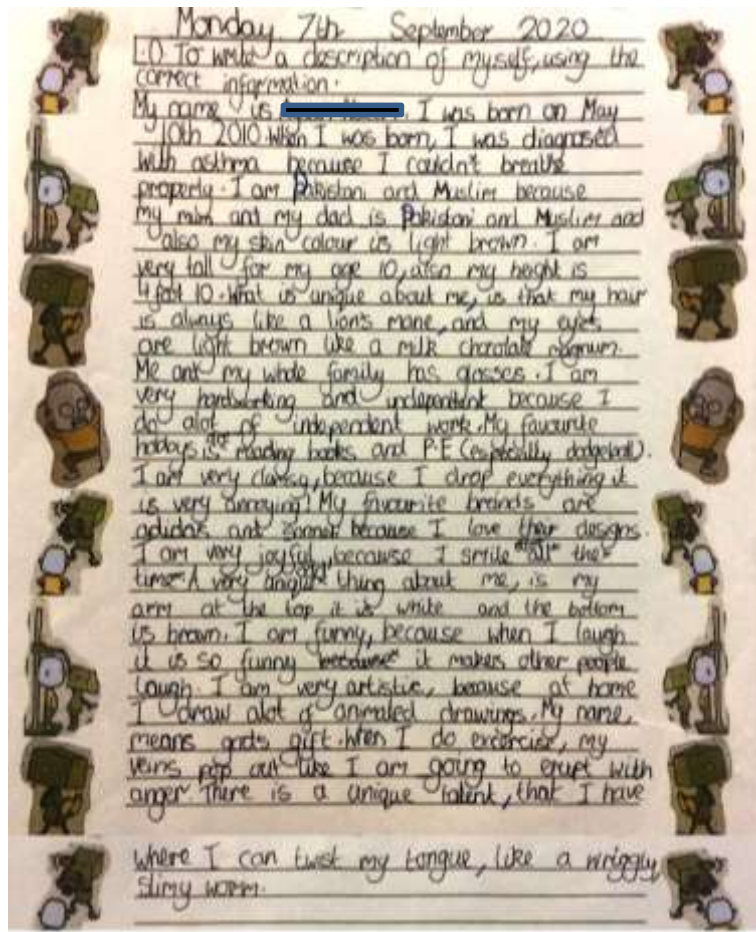 Monday 7th September 2020
L.O To write a description of myself, using the
correct information.
My name is I was born on May
10th 2010. When I was born, I was diagnosed
with asthma because I couldn't breathe
properly. I am Pakistani and Muslim because
my mum ant my dad is Pakistani and Muslim and
also my skin colour is light brown. I am
very tall for my age 10, also my height is
4 foot 10. What is unique about me, is that my hair
is always like a lion's mane, and my eyes
are light brown like a milk chocolate magnum.
Me ant my whole family has glasses. I am
very hardworking and independent because I
do alot of independent work. My favourite
hobbys is reading books and P.E (especially dodgeball).
I am very clumsy, because I drop everything it
is very annoying! My favourite brands are
adidas ant because I love their designs.
I am very joyful, because I smile all the
time. A very unique thing about me, is my
arm at the top it is white and the bottom
is brown. I am funny, because when I laugh
it is so funny because it makes other people
laugh. I am very artistic, because at home
I draw alot of animated drawings. My name,
means gods gift. When I do excercise, my
veins pop out like I am going to erupt with
anger. There is a unique talent, that I have
where I can twist my tongue, like a wriggly
slimy worm.